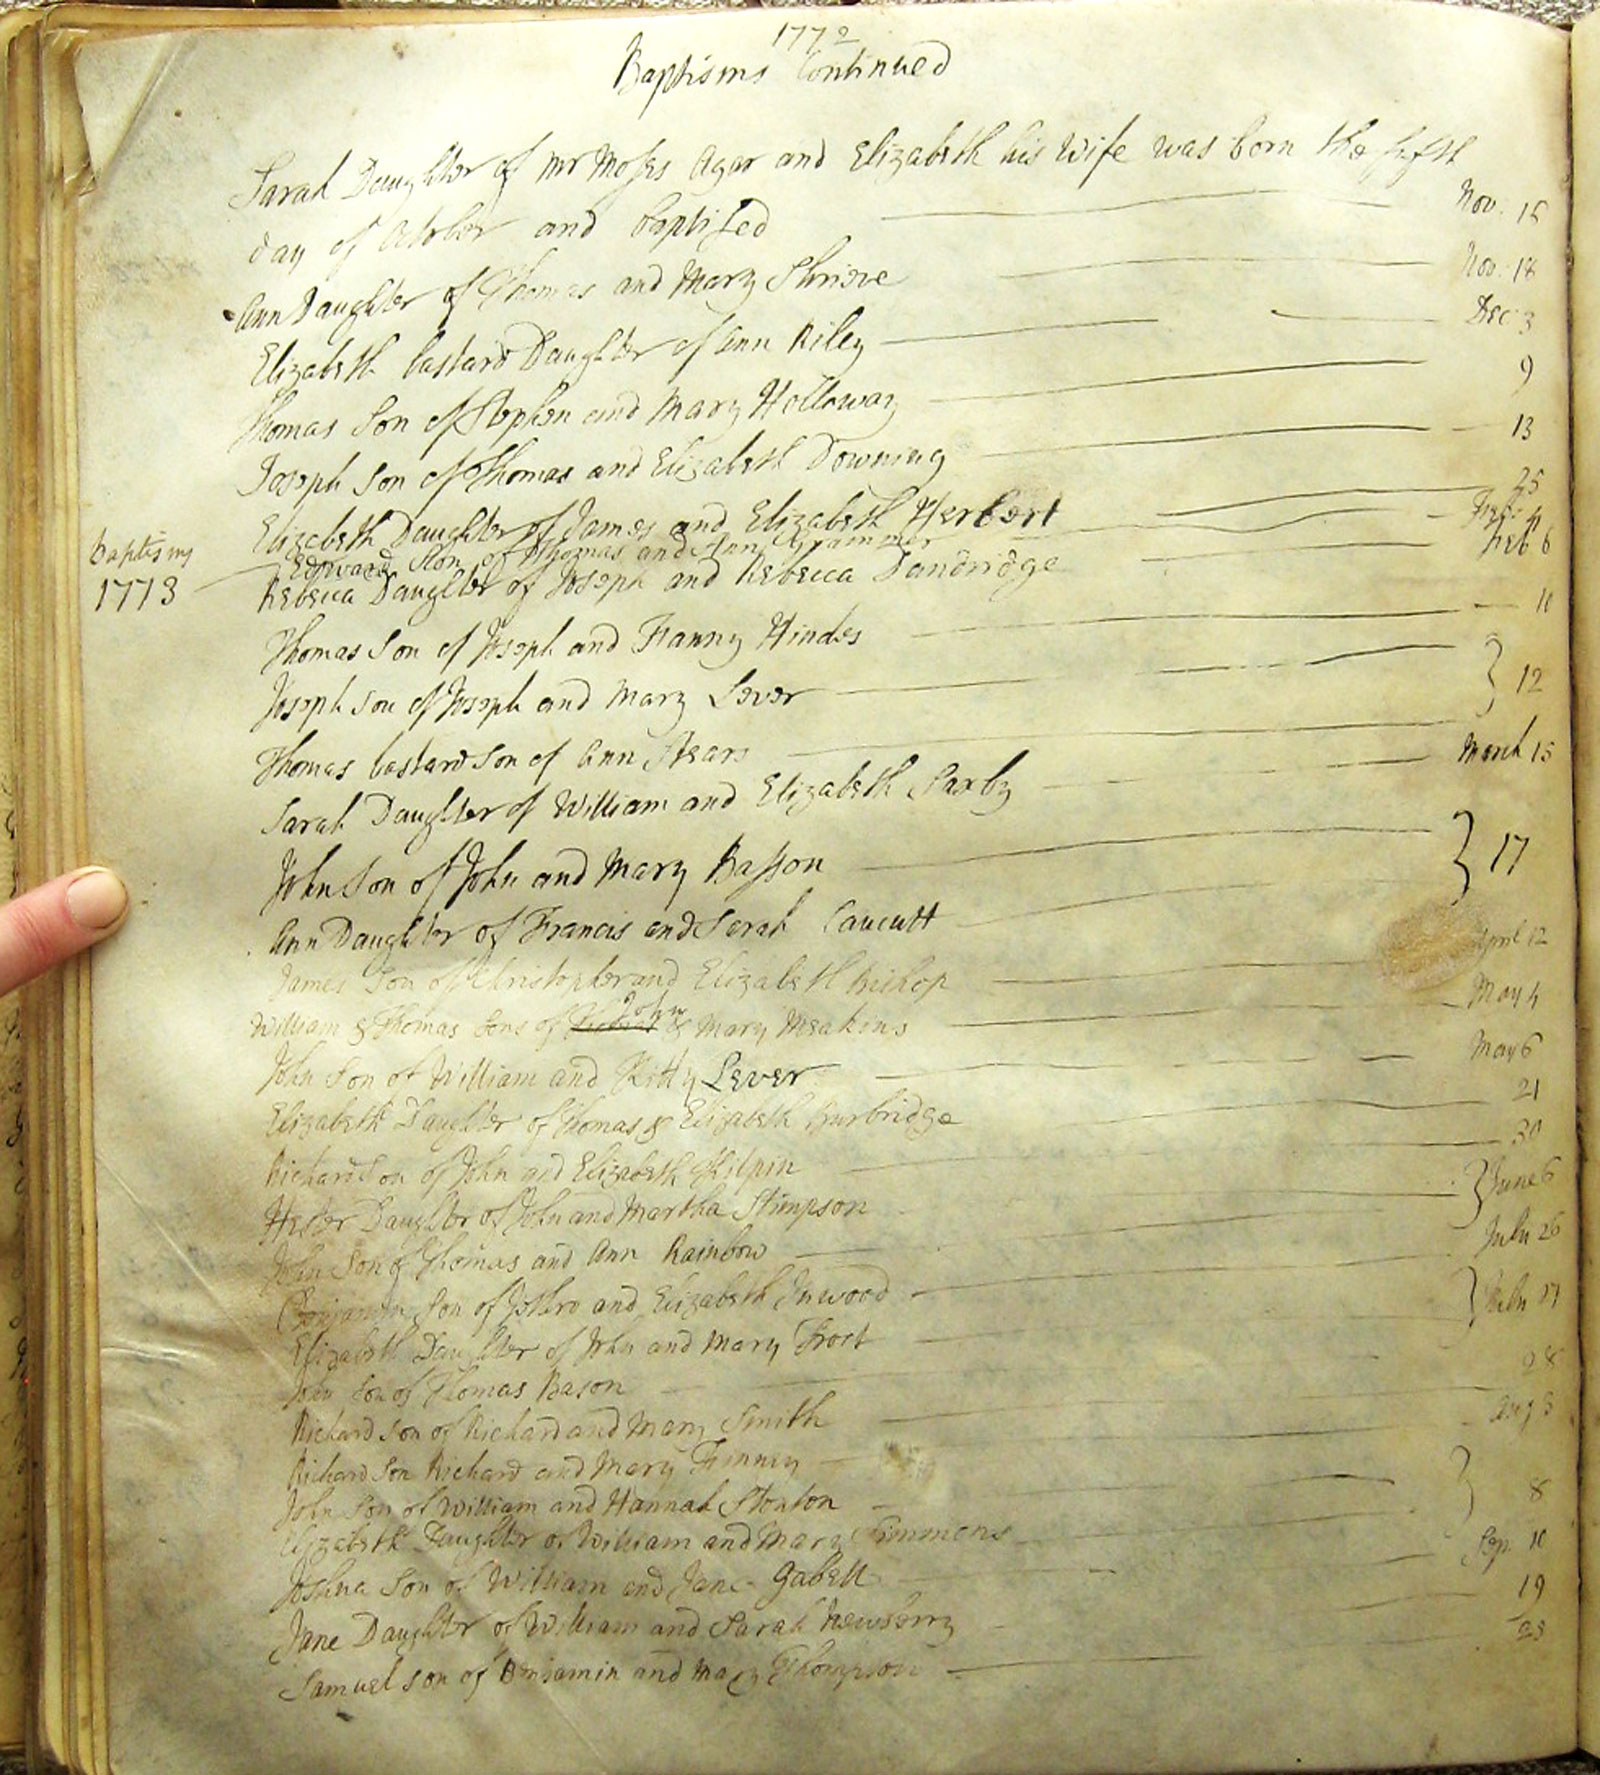 1772
Baptisms Continued
Sarah Daughter of Mr Moses Agar and Elizabeth his Wife was born the fifth
day of October and baptized Nov. 15
Ann Daughter of Thomas and Mary Shrieve Nov. 18
Elizabeth bastard Daughter of Ann Riley Dec 3
Thomas Son of Stephen and Mary Holloway 9
Joseph Son of Thomas and Elizabeth Downing 13
Elizabeth Daughter of James and Elizabeth Herbert 25
Edward Son of Thomas and Ann Grammer
Baptisms
1773
Rebecca Daughter of Joseph and Rebecca Dandridge Feb 6
Thomas Son of Joseph and Fanny Hindes 10
Joseph Son of Joseph and Mary Lever } 12
Thomas bastard Son of Ann Stears
Sarah Daughter of William and Elizabeth Saxby March 15
John Son of John and Mary Basson } 17
Ann Daughter of Francis and Sarah Caucutt
James Son of Christopher and Elizabeth Bishop April 12
John
William & Thomas Sons of & Mary Meakins May 4
John Son of William and Kitty Lever May 6
Elizabeth Daughter of Thomas & Elizabeth Burbridge 21
Richard Son of John and Elizabeth Kilpin 30
Hester Daughter of John and Martha Stimpson } June 6
John Son of Thomas and Ann Rainbow
Benjamin Son of Jethro and Elizabeth Inwood July 26
Elizabeth Daughter of John and Mary Frost } July 27
John Son of Thomas Bason
Richard Son of Richard and Mary Smith 28
Richard Son Richard and Mary Finney Aug 3
John Son of William and Hannah Stonton } 8
Elizabeth Daughter of William and Mary Simmons
Joshua Son of William and Jane Gabell Sep. 10
Jane Daughter of William and Sarah Newberry 19
Samuel Son of Benjamin and Mary Thompson 25